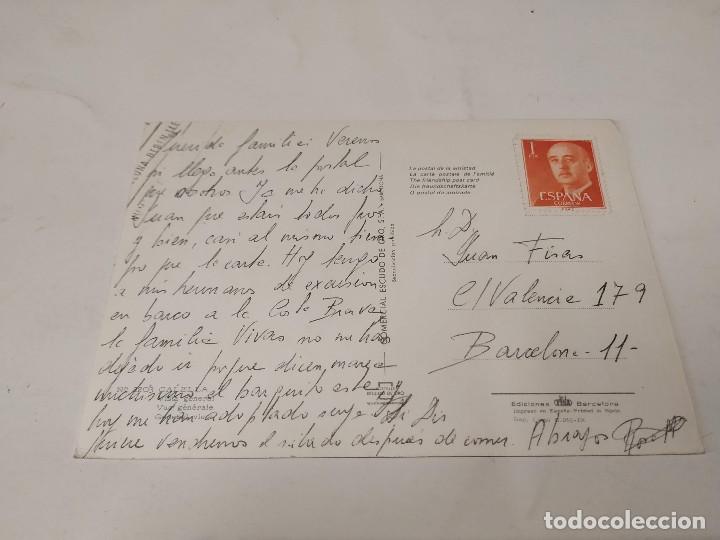 Querida familia Veremos
si llego antes la postal
que nosotros Ya me ha dicho
Juan que estais todos
y bien, casi al mismo tiem
po que la carta. Hoy tengo
a mis hermanos de excursion
en barco a la Costa Brava
la familia Vivas no me ha
dejado ir porque dicen, marea
muchisimo el barquito este
hoy me han adoptado
quiere vendremos el sabado despues de comer. Abrazos
COMERCIAL ESCUDO DE ORO, S.A.
CALELLA
Vista general
Vue générale
La postal de la amistad
La carte postale de l'amitié
The friendship post card
Die freundschaftskarte
O postal da amizade
1
ESPAÑA
CORREOS
Juan
C/ Valencia 179
Barcelona -11-
Ediciones Barcelona
Impreso en España - Printed in Spain
todocoleccion.net